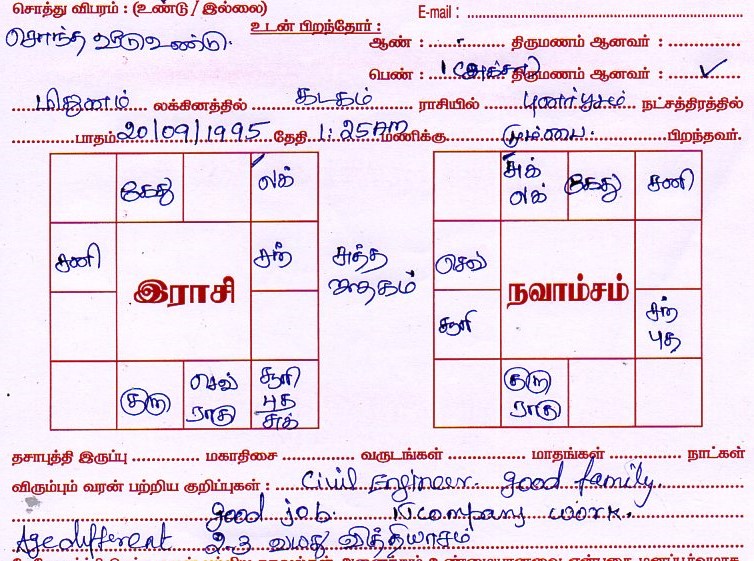 சொத்து விபரம் : (உண்டு / இல்லை)
E-mail :
உடன் பிறந்தோர் :
சொந்த வீடு உண்டு.
ஆண் : திருமணம் ஆனவர் :
பெண் : 1 (அக்கா) திருமணம் ஆனவர் : ✓
மிதுனம் லக்கினத்தில் கடகம் ராசியில் புனர்பூசம் நட்சத்திரத்தில்
பாதம் 20/09/1995 தேதி 1:25AM மணிக்கு மும்பை. பிறந்தவர்.
கேது லக்
சுக் லக் கேது சனி
சனி சந்
செவ்
சுத்த ஜாதகம்
இராசி
நவாம்சம்
சூரி சந் புத
குரு செவ் ராகு சூரி புத சுக்
குரு ராகு
தசாபுத்தி இருப்பு மகாதிசை வருடங்கள் மாதங்கள் நாட்கள்
விரும்பும் வரன் பற்றிய குறிப்புகள் : Civil Engineer. good family.
good job. company work.
Age different 2-3 வயது வித்தியாசம்